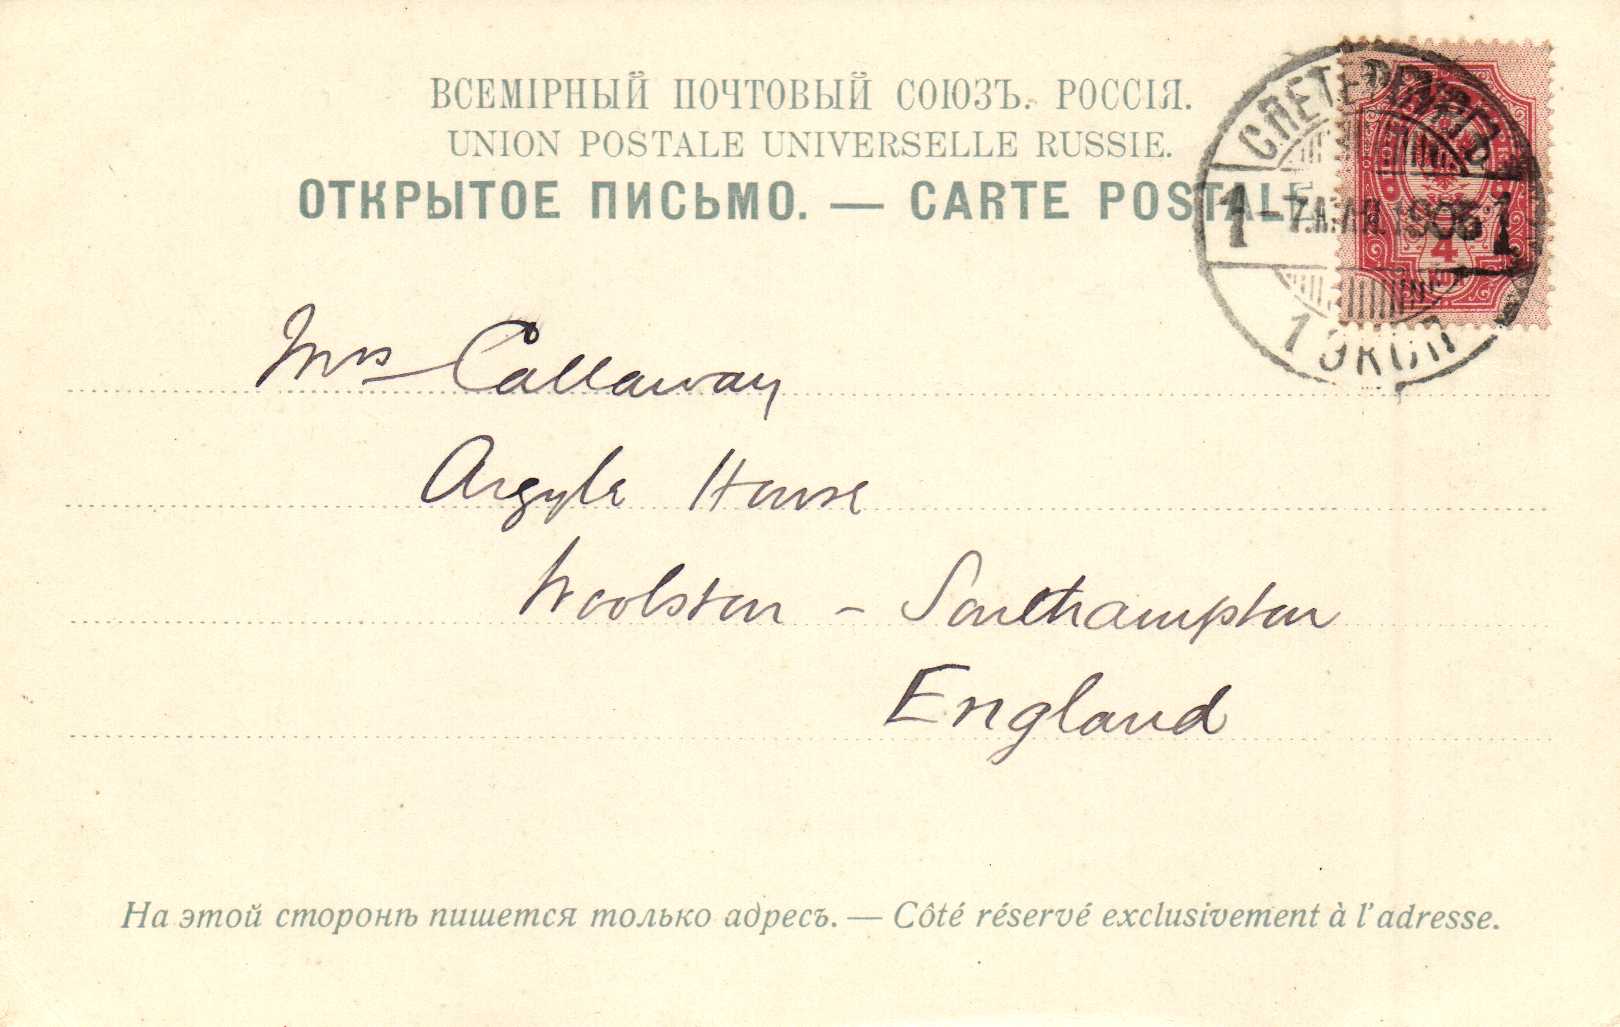 ВСЕМІРНЫЙ ПОЧТОВЫЙ СОЮЗЪ. РОССІЯ.
UNION POSTALE UNIVERSELLE RUSSIE.
ОТКРЫТОЕ ПИСЬМО. — CARTE POSTALE
С.ПЕТЕРБУРГЪ
1 1
1 ЭКСП
4
Mrs Callaway
Argyle House
Woolston - Southampton
England
На этой сторонѣ пишется только адресъ. — Côté réservé exclusivement à l'adresse.